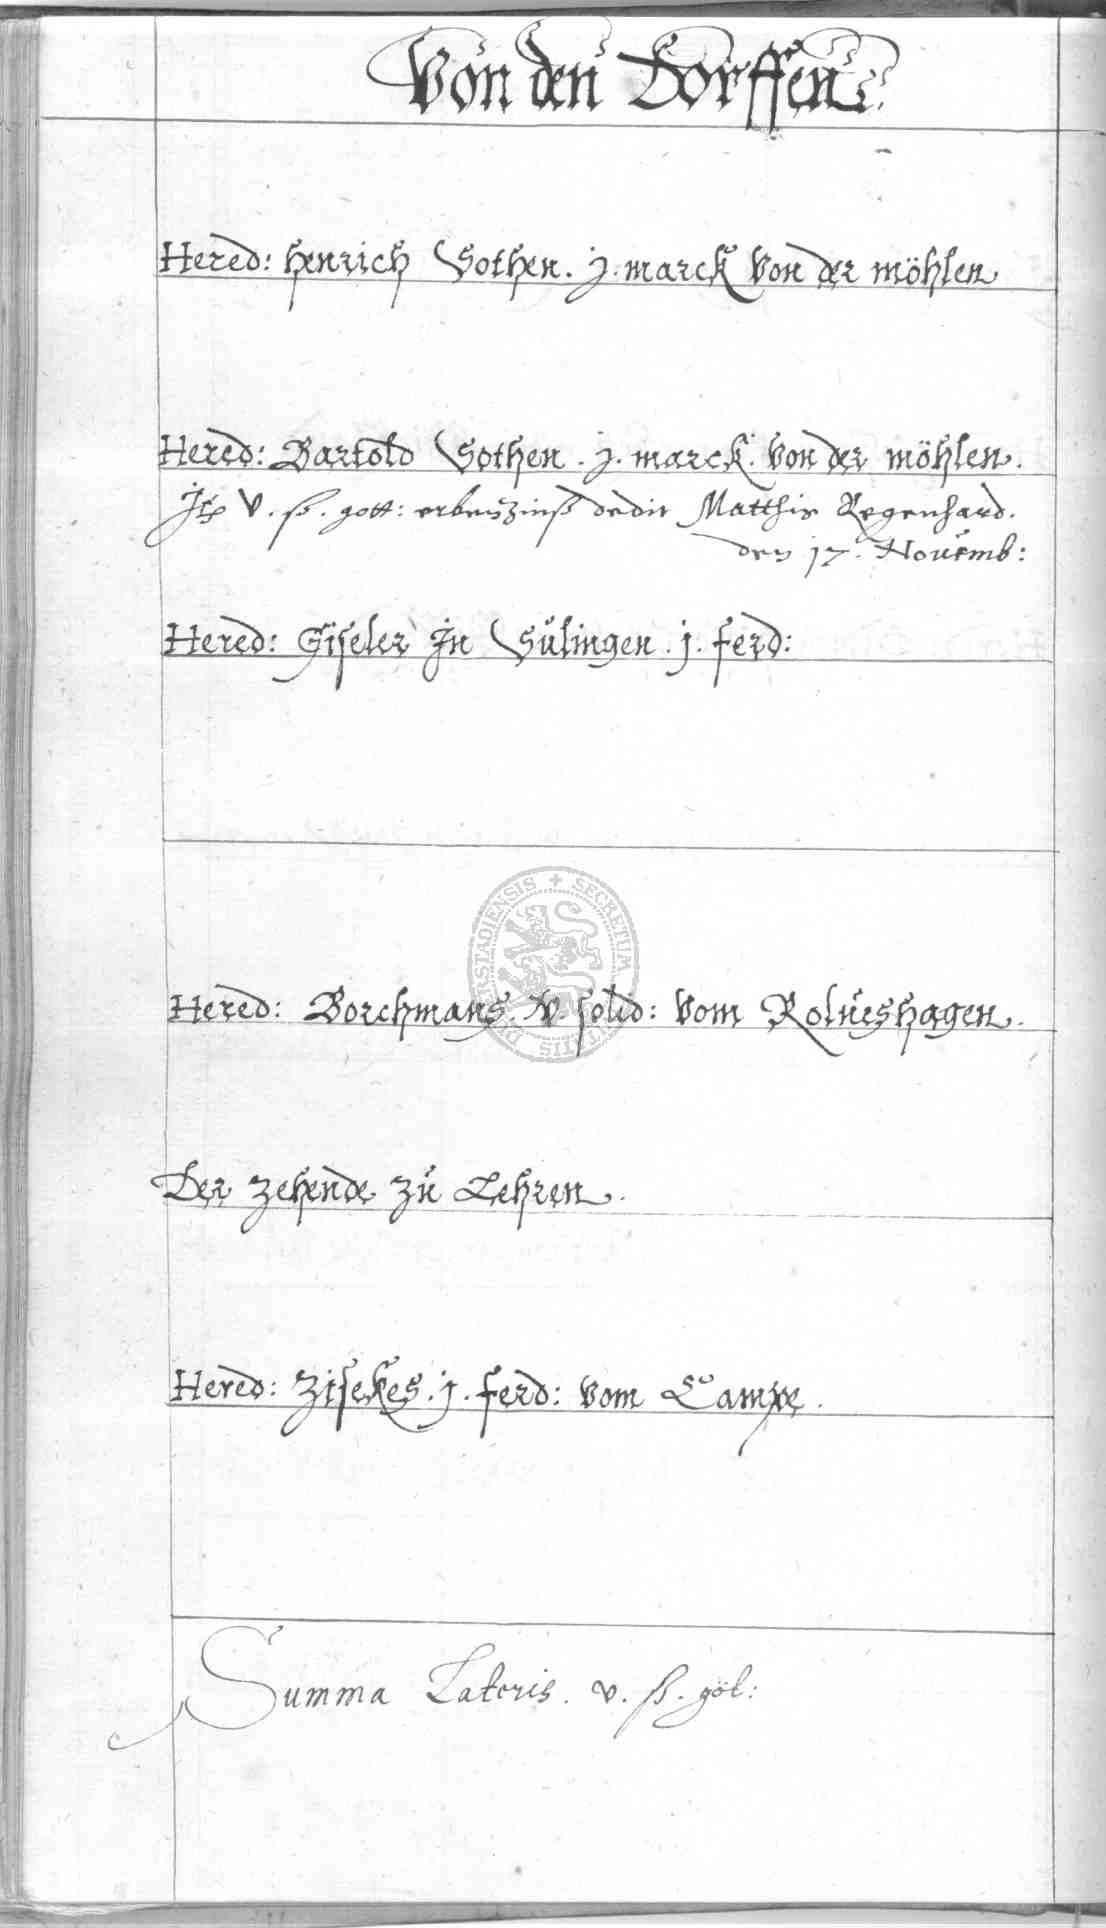 Von den Dorffen
Hered: Henrich Sothen. j. marck von der möhlen
Hered: Bartold Sothen. j. marck. von der möhlen.
Jt. v. ß. gott: erbenzinß dedit Matthis Regenhard.
den 17. Novemb:
Hered: Giseler Jn Sülingen. j. ferd:
Hered: Borchmans. v. solid: vom Rolueshagen.
Der zehende zu Lehren.
Hered: Zisekes. j. ferd: vom Campe.
Summa Lateris. v. ß. göt:
SECRETUM DUDERSTADIENSIS